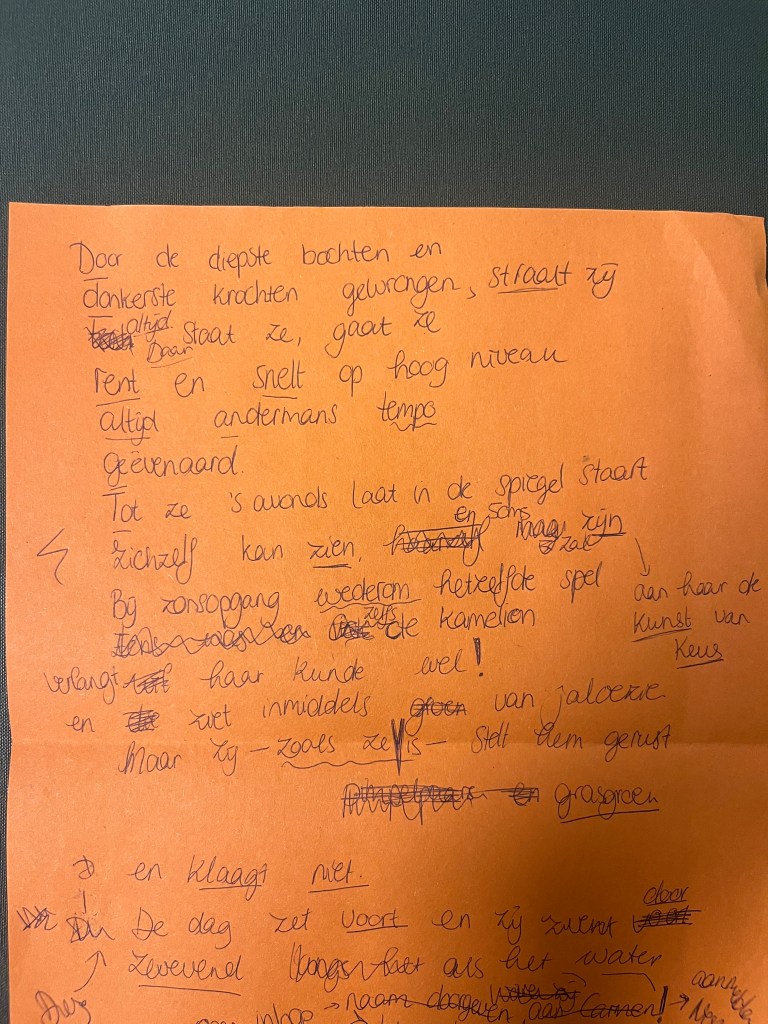 Door de diepste bochten en
donkerste krachten gewrongen, straalt zij
altijd staat ze, gaat ze
Daar
rent en snelt op hoog niveau
altijd andermans tempo
geëvenaard.
Tot ze 's avonds laat in de spiegel staart
en soms
zichzelf kan zien, mag zijn
zal
aan haar de
kunst van
keus
Bij zonsopgang wederom hetzelfde spel
zelfs de kameleon
verlangt haar kunde wel!
en ziet inmiddels groen van jaloezie
Maar zij – zoals ze is – stelt hem gerust
en grasgroen
en klaagt niet.
De dag zet voort en zij zwemt door
zwevend als het water
naam doorgeven, aan Carmen!